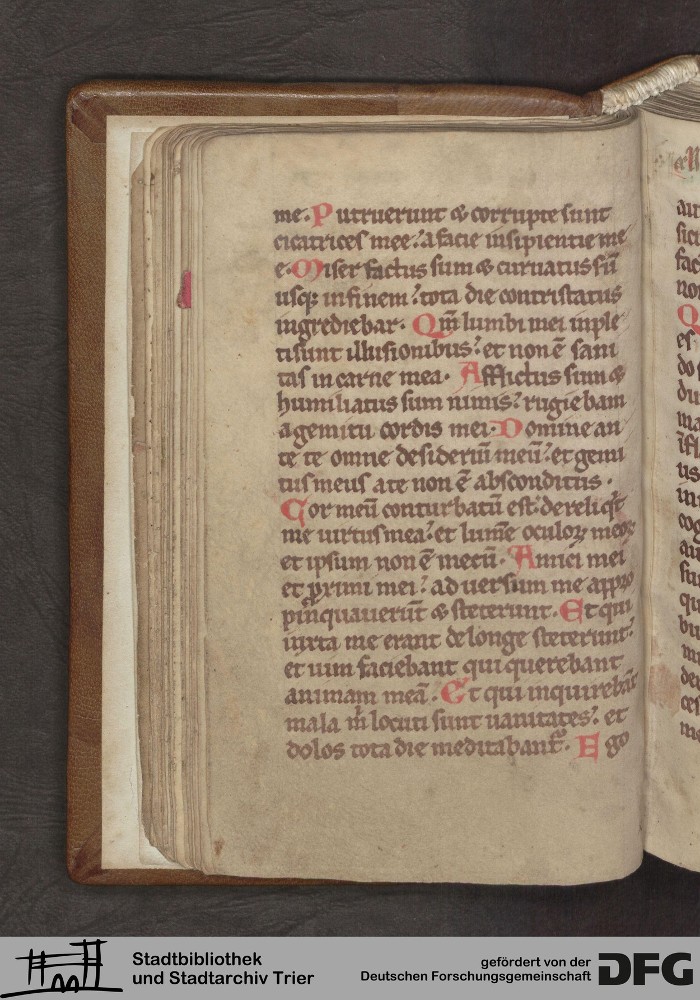 me. Putruerunt & corrupte sunt
cicatrices mee: a facie insipientie me
e. Miser factus sum & curuatus sū
usq; in finem: tota die contristatus
ingrediebar. Qm̄ lumbi mei inple
ti sunt illusionibus: et non ē sani
tas in carne mea. Afflictus sum &
humiliatus sum nimis: rugiebam
a gemitu cordis mei. Domine an
te te omne desideriū meū: et gemi
tus meus a te non ē absconditus.
Cor meū conturbatū est: dereliqt
me uirtus mea: et lum̄e oculoꝝ meoꝝ
et ipsum non ē mecū. Amici mei
et prximi mei: aduersum me appro
pin̄quauerūt & steterunt. Et qui
iuxta me erant de longe steterunt:
et uim faciebant qui querebant
animam meā. Et qui inquirebāt
mala m̄ locuti sunt uanitates: et
dolos tota die meditabant᷑. Ego
Stadtbibliothek
und Stadtarchiv Trier
gefördert von der
Deutschen Forschungsgemeinschaft
DFG